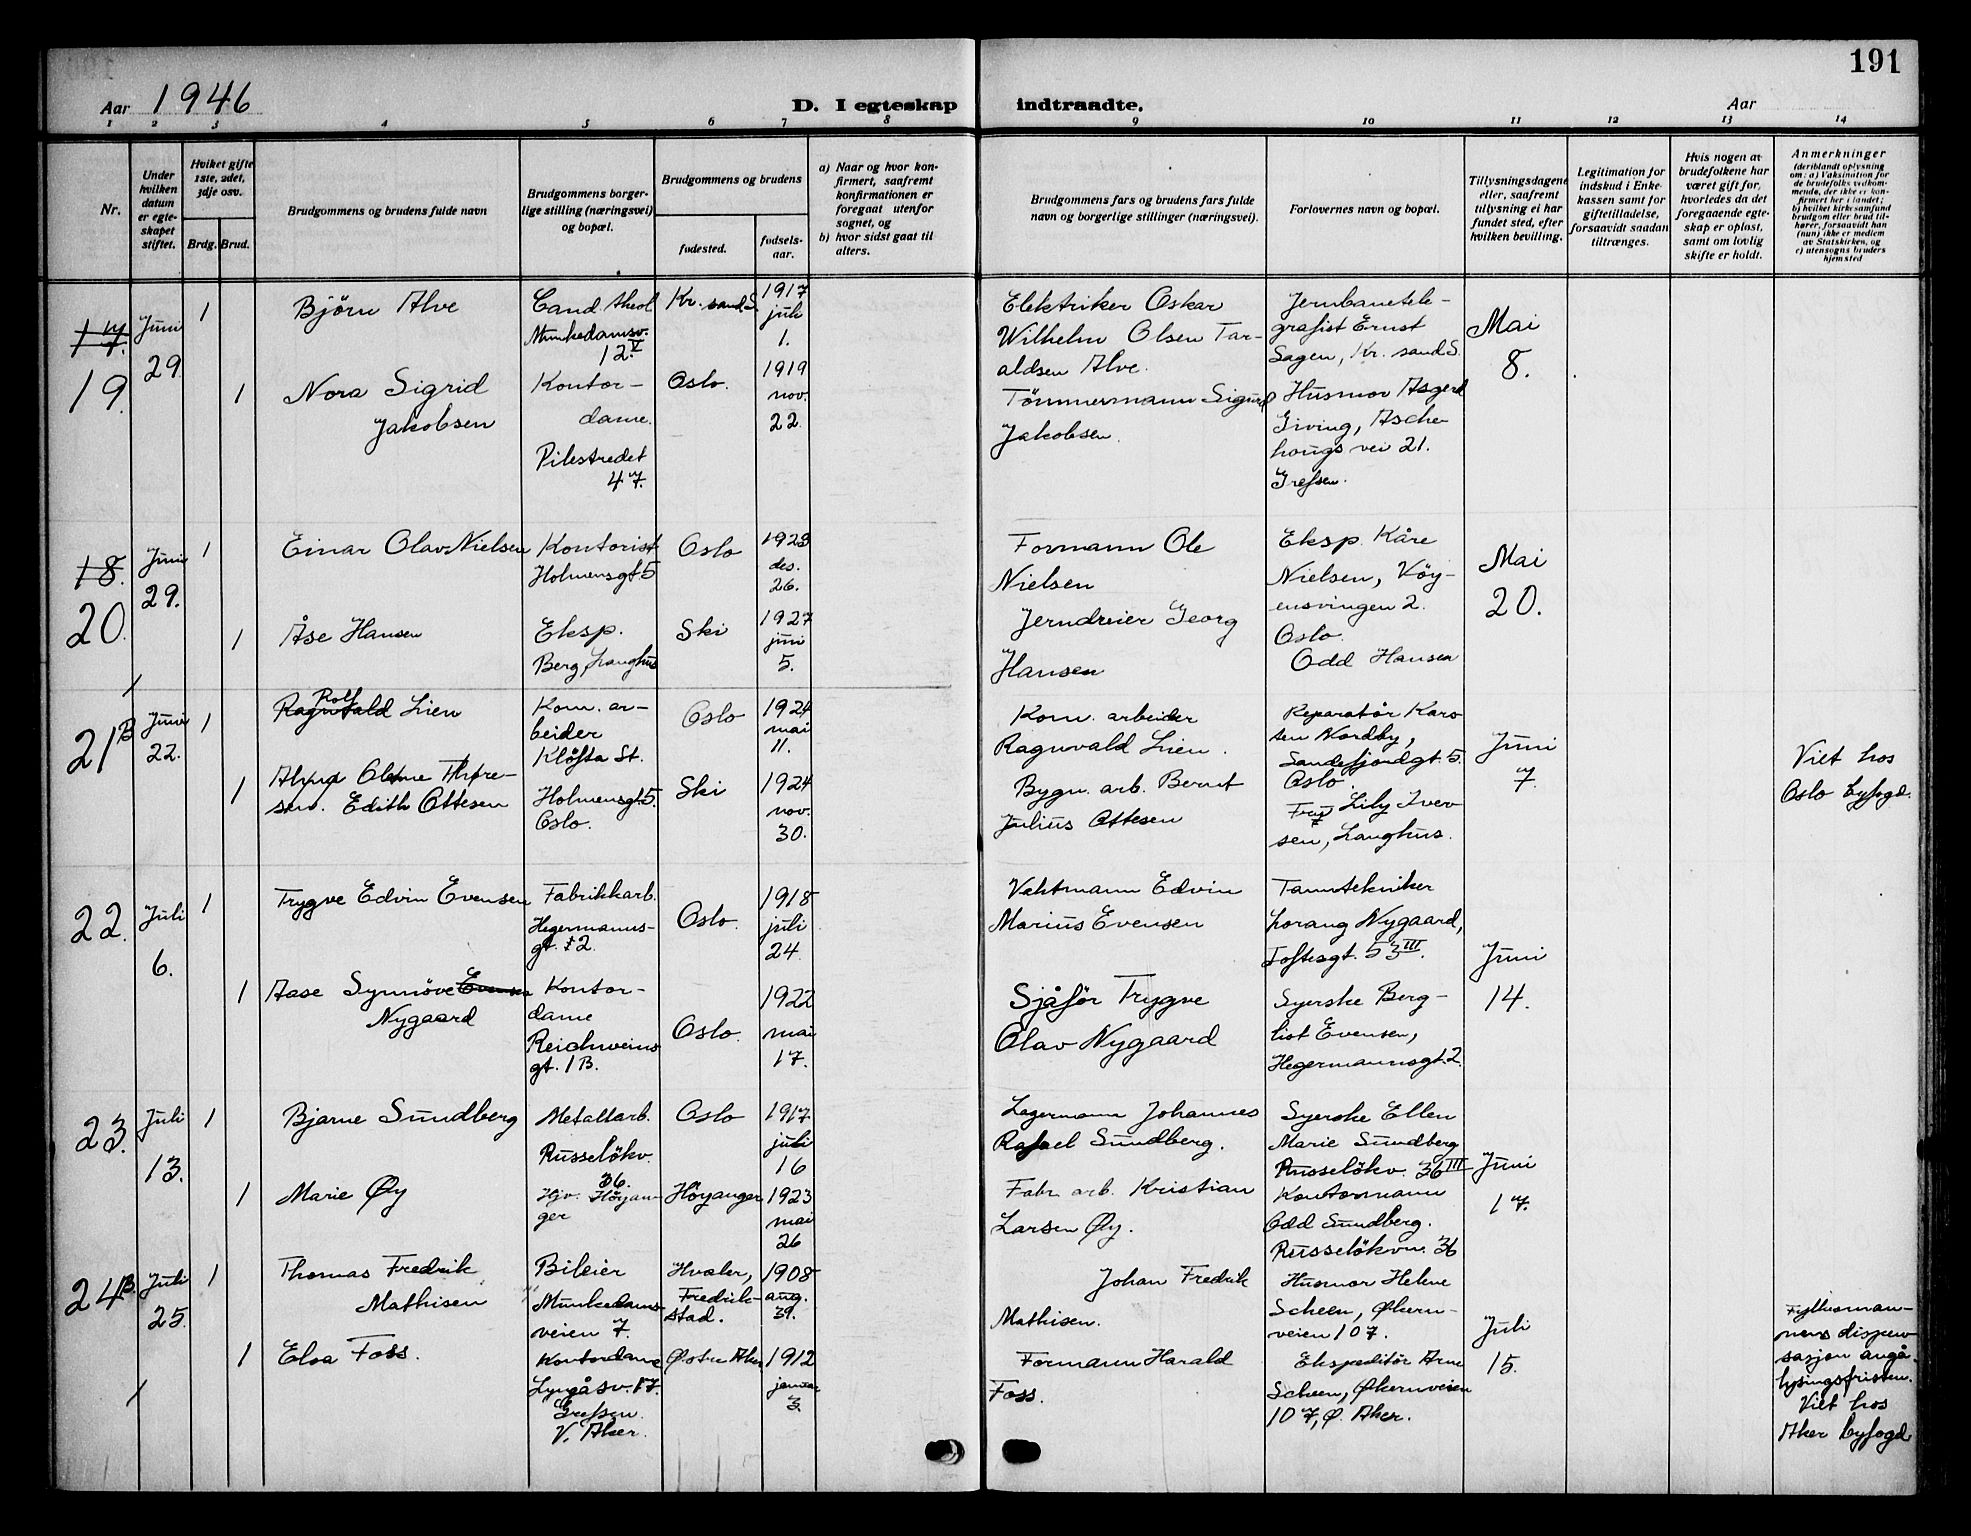 191
Aar 1946
D. I egteskap indtraadte.
Aar
1 2 3 4 5 6 7 8 9 10 11 12 13 14
Nr.
Under
hvilken
datum
er egte-
skapet
stiftet.
Hvilket gifte
1ste, 2det,
3dje osv.
Brdg. Brud.
Brudgommens og brudens fulde navn
Brudgommens borger-
lige stilling (næringsvei)
og bopæl.
Brudgommens og brudens
fødested.
fødsels-
aar.
a) Naar og hvor kon-
firmert, saafremt
konfirmationen er
foregaat utenfor
sognet, og
b) hvor sidst gaat til
alters.
Brudgommens fars og brudens fars fulde
navn og borgerlige stillinger (næringsvei).
Forlovernes navn og bopæl.
Tillysningsdagene
eller, saafremt
tillysning ei har
fundet sted, efter
hvilken bevilling.
Legitimation for
indskud i Enke-
kassen samt for
giftetilladelse,
forsaavidt saadan
tiltrænges.
Hvis nogen av
brudefolkene har
været gift før,
hvorledes da det
foregaaende egte-
skap er opløst,
samt om lovlig
skifte er holdt.
Anmerkninger
(deriblandt oplysning
om: a) Vaksination for
de brudefolks vedkom-
mende, der ikke er kon-
firmert her i landet;
b) hvilket kirkesamfund
brudgom eller brud til-
hører, forsaavidt han
(hun) ikke er medlem
av Statskirken, og
c) utensogns bruders
hjemsted
17.
19.
Juni
29.
1
Bjørn Alve
Cand. theol
Munkedamsv.
12 V
Kr. sand S.
1917
juli
1.
Elektriker Oskar
Wilhelm Olsen Tar-
aldsen Alve.
Jernbanetele-
grafist Ernst
Sagen, Kr. sand S.
Mai
8.
1
Nora Sigrid
Jakobsen
Kontor-
dame.
Pilestredet
47.
Oslo.
1919
nov.
22.
Tömmermann Sigurd
Jakobsen.
Husmor Asgerd
Giving, Asche-
hougs vei 21.
Grefsen.
18.
20.
Juni
29.
1
Einar Olav Nielsen
Kontorist
Holmensgt 5
Oslo
1923
des.
26.
Formann Ole
Nielsen
Eksp. Kåre
Nielsen, Vöy-
ensvingen 2.
Oslo.
Mai
20.
1
Åse Hansen
Eksp.
Berg, Langhus
Ski
1927
juni
5.
Jerndreier Georg
Hansen
Odd Hansen
21 B
Juni
22.
1
Rolf
Ragnvald Lien
Kom. ar-
beider
Klöfta St.
Oslo
1924
mai
11.
Kom. arbeider
Ragnvald Lien.
Reparatör Karo
sen Nordby,
Sandefjordgt. 5.
Oslo.
Juni
7.
Viet hos
Oslo byfogd.
1
Edith Ottesen
Holmensgt 5.
Oslo.
Ski
1924
nov.
30.
Bygn. arb. Bernt
Julius Ottesen
Lily Iver
sen, Langhus.
22.
Juli
6.
1
Trygve Edvin Evensen
Fabrikkarb.
Hegermanns-
gt. 2.
Oslo.
1918
juli
24.
Vaktmann Edvin
Marius Evensen
Tanntekniker
Lorang Nygaard,
Toftesgt. 53 III.
Juni
14.
1
Aase Synnöve Evensen
Nygaard
Kontor-
dame
Reichweins
gt. 1 B.
Oslo.
1922
mai
17.
Sjåför Trygve
Olav Nygaard
Syerske Berg-
liot Evensen,
Hegermannsgt. 2.
23.
Juli
13.
1
Bjarne Sundberg
Metallarb.
Russelökv.
36.
Oslo
1917.
juli
16
Lagermann Johannes
Rafael Sundberg.
Syerske Ellen
Marie Sundberg
Russelökv. 36 III
Juni
17.
1
Marie Øy
Hjv. Höyan-
ger
Höyanger
1923
mai
26
Fabr. arb. Kristian
Larsen Øy.
Kontormann
Odd Sundberg.
Russelökvn. 36
24 B.
Juli
25.
1
Thomas Fredrik
Mathisen
Bileier
Munkedams-
veien 7.
Hvaler,
Fredrik-
stad.
1908
aug.
Johan Fredrik
Mathisen.
Husmor Helene
Scheen, Økern-
veien 107.
Juli
15.
Fylkesman-
nens dispen-
sasjon angå.
lysingsfristen.
Viet hos
Aker byfogd
1
Elsa Foss.
Kontordame
Lyngåsv. 17.
Grefsen.
V. Aker.
Østre Aker
1912
januar
3.
Formann Harald
Foss.
Ekspeditör Arne
Scheen, Økernveien
107, Ø. Aker.